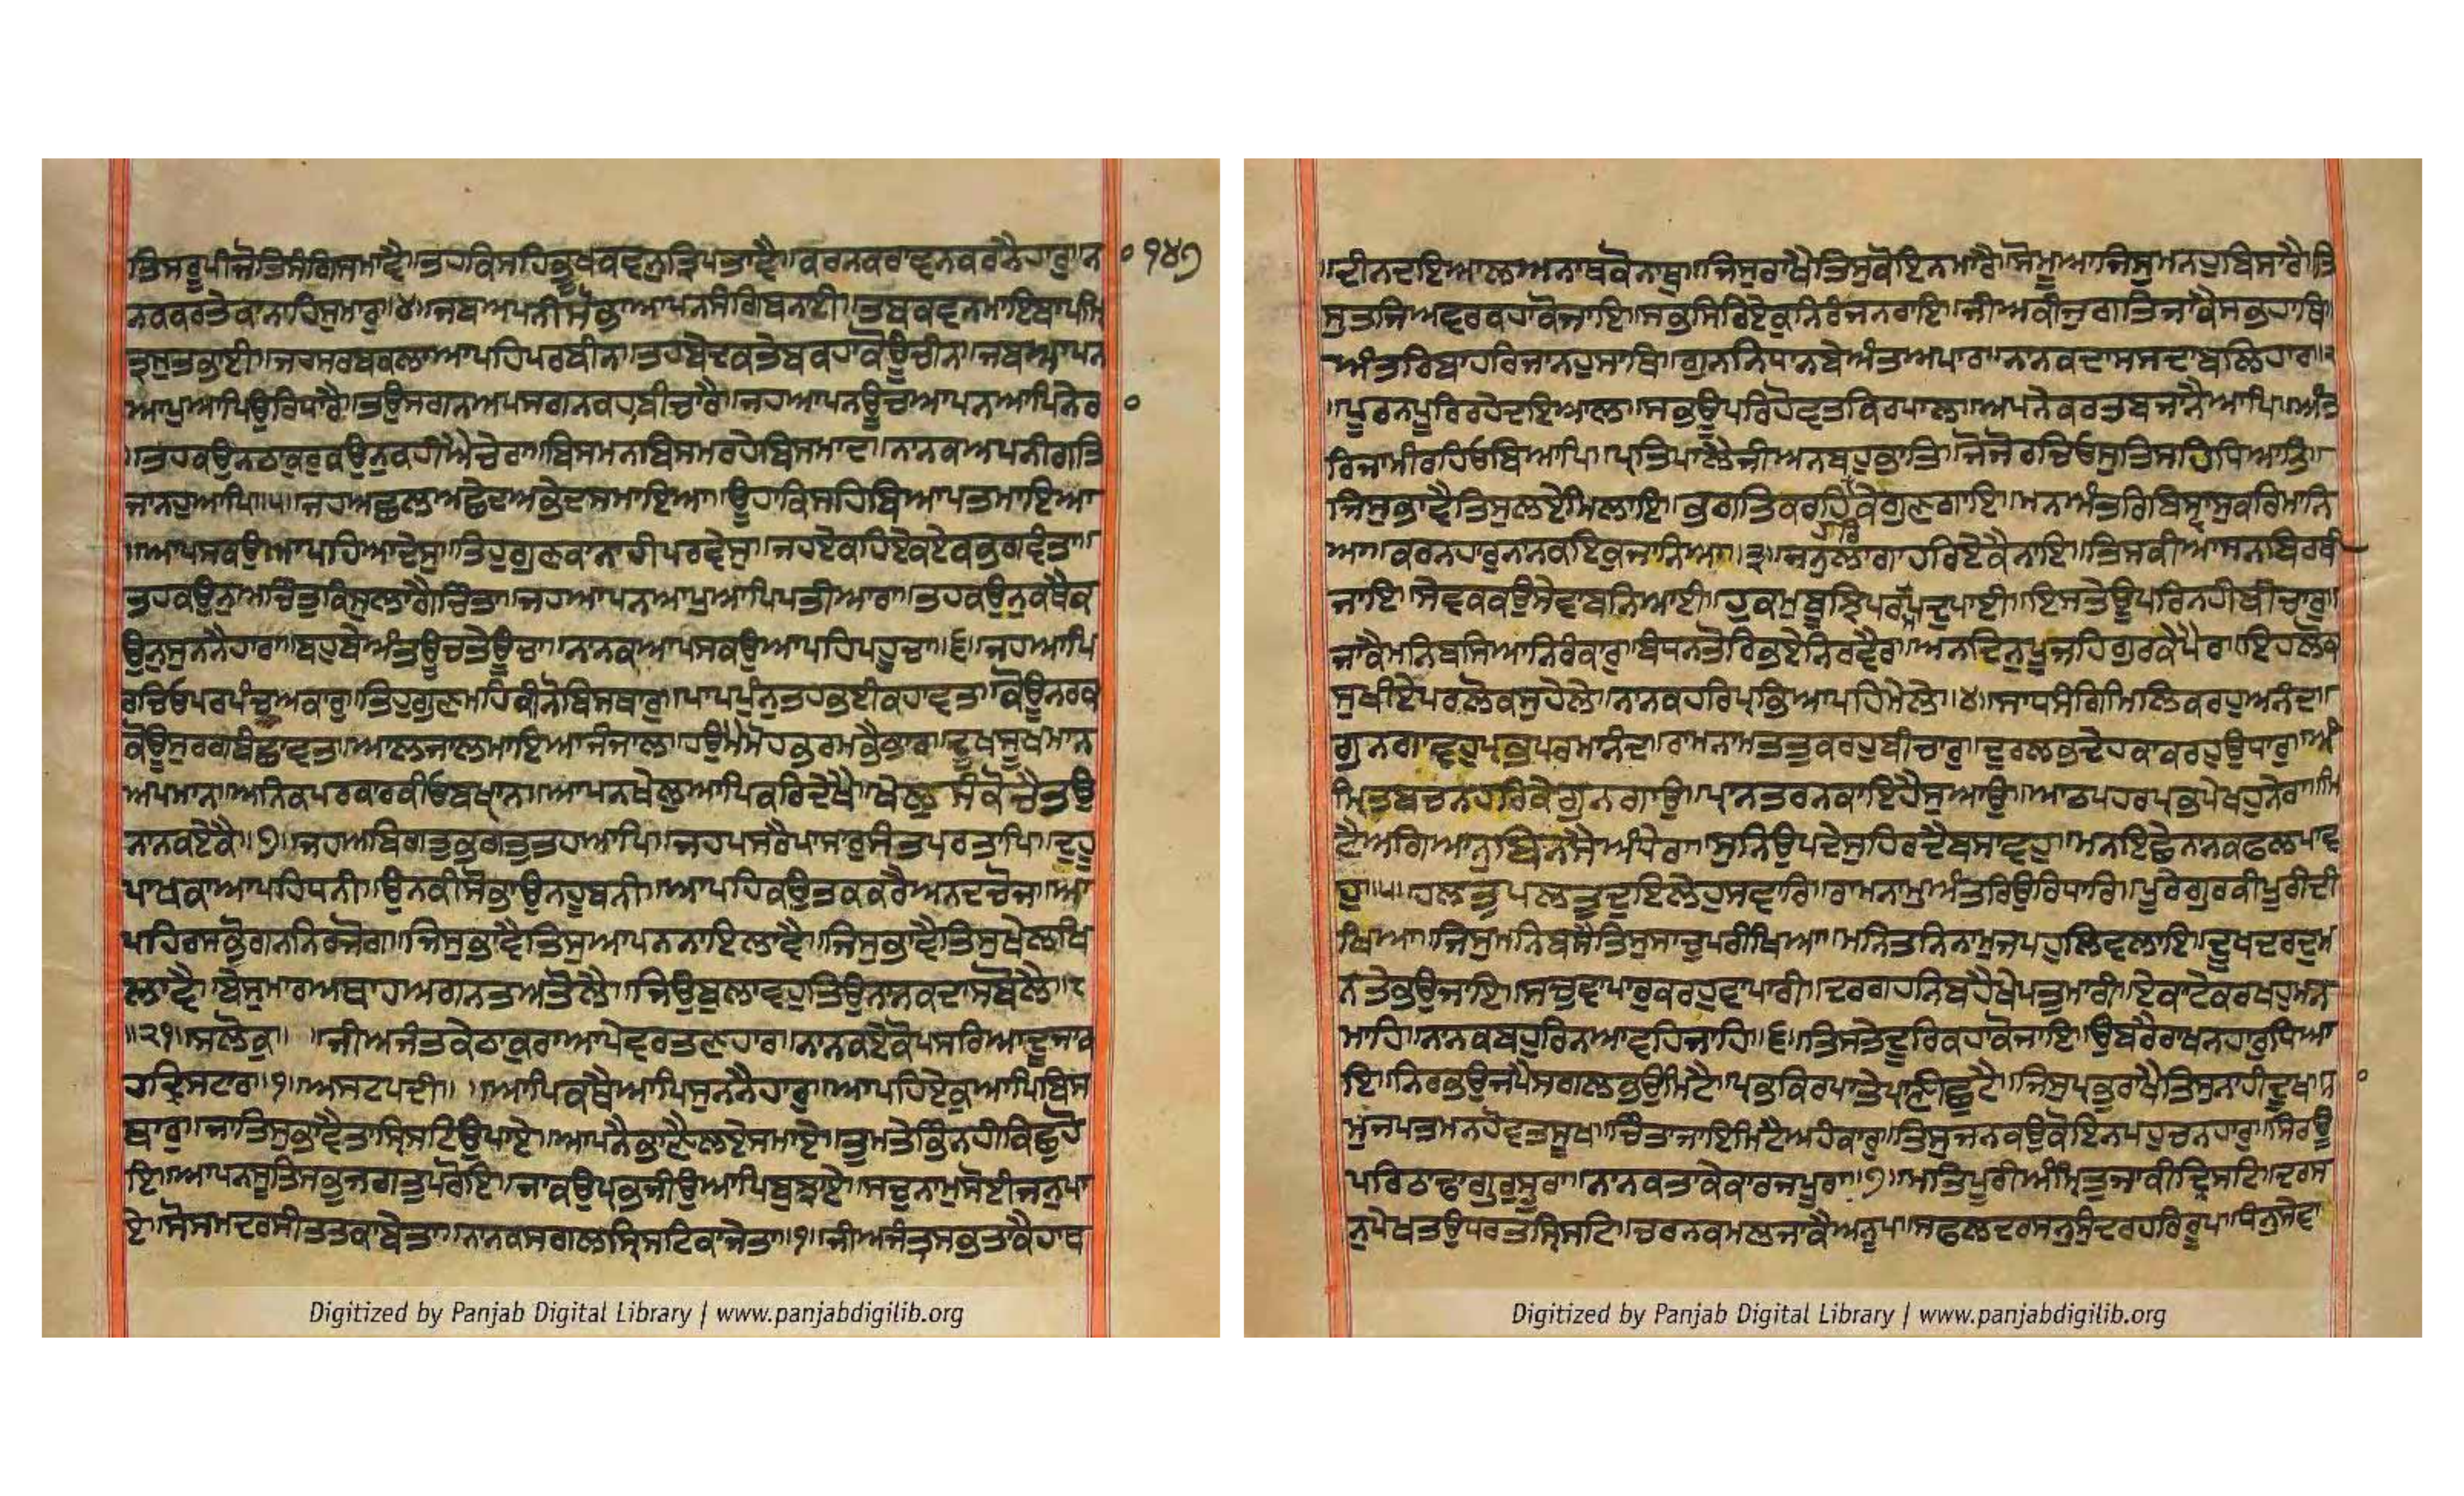 ਤਿਸਰੂਪੀਜੋਤਿਸੰਗਿਸਮਾਵੈ॥ਤਹਕਿਸਹਿਭੂਖਕਵਨੁਤ੍ਰਿਪਤਾਵੈ॥ਕਰਨਕਰਾਵਨਕਰਨੈਹਾਰੁ॥ਨ ੧੪੭
ਨਕਕਰਤੇਕਾਨਾਹਿਸੁਮਾਰੁ॥੪॥ਜਬਅਪਨੀਸੋਭਾਆਪਨਸੰਗਿਬਨਾਈ॥ਤਬਕਵਨਮਾਇਬਾਪਮਿ
ਤ੍ਰਸੁਤਭਾਈ॥ਜਹਸਰਬਕਲਾਆਪਹਿਪਰਬੀਨ॥ਤਹਬੇਦਕਤੇਬਕਹਾਕੋਊਚੀਨ॥ਜਬਆਪਨ
ਆਪੁਆਪਿਉਰਿਧਾਰੈ॥ਤਉਸਗਨਅਪਸਗਨਕਹਾਬੀਚਾਰੈ॥ਜਹਆਪਨਊਚਆਪਨਆਪਿਨੇਰ
॥ਤਹਕਉਨਠਾਕੁਰੁਕਉਨੁਕਹੀਐਚੇਰਾ॥ਬਿਸਮਨਬਿਸਮਰਹੇਬਿਸਮਾਦ॥ਨਾਨਕਅਪਨੀਗਤਿ
ਜਾਨਹੁਆਪਿ॥੫॥ਜਹਅਛਲਅਛੇਦਅਭੇਦਸਮਾਇਆ॥ਊਹਾਕਿਸਹਿਬਿਆਪਤਮਾਇਆ
॥ਆਪਸਕਉਆਪਹਿਆਦੇਸੁ॥ਤਿਹੁਗੁਣਕਾਨਾਹੀਪਰਵੇਸੁ॥ਜਹਏਕਹਿਏਕਏਕਭਗਵੰਤਾ॥
ਤਹਕਉਨੁਅਚਿੰਤੁਕਿਸੁਲਾਗੈਚਿੰਤਾ॥ਜਹਆਪਨਆਪੁਆਪਿਪਤੀਆਰਾ॥ਤਹਕਉਨੁਕਥੈਕ
ਉਨੁਸੁਨਨੈਹਾਰਾ॥ਬਹੁਬੇਅੰਤਊਚਤੇਊਚਾ॥ਨਾਨਕਆਪਸਕਉਆਪਹਿਪਹੂਚਾ॥੬॥ਜਹਆਪਿ
ਰਚਿਓਪਰਪੰਚੁਅਕਾਰੁ॥ਤਿਹੁਗੁਣਮਹਿਕੀਨੋਬਿਸਥਾਰੁ॥ਪਾਪਪੁੰਨੁਤਹਭਈਕਹਾਵਤ॥ਕੋਊਨਰਕ
ਕੋਊਸੁਰਗਬੰਛਾਵਤ॥ਆਲਜਾਲਮਾਇਆਜੰਜਾਲ॥ਹਉਮੈਮੋਹਭਰਮਭੈਭਾਰ॥ਦੂਖਸੂਖਮਾਨ
ਅਪਮਾਨ॥ਅਨਿਕਪਰਕਾਰਕੀਓਬਖ੍ਯਾਨ॥ਆਪਨਖੇਲੁਆਪਿਕਰਿਦੇਖੈ॥ਖੇਲੁਸੰਕੋਚੈਤਉ
ਨਾਨਕਏਕੈ॥੭॥ਜਹਅਬਿਗਤੁਭਗਤੁਤਹਆਪਿ॥ਜਹਪਸਰੈਪਾਸਾਰੁਸੰਤਪਰਤਾਪਿ॥ਦੁਹੂ
ਪਾਖਕਾਆਪਹਿਧਨੀ॥ਉਨਕੀਸੋਭਾਉਨਹੂਬਨੀ॥ਆਪਹਿਕਉਤਕਕਰੈਅਨਦਚੋਜ॥ਆ
ਪਹਿਰਸਭੋਗਨਨਿਰਜੋਗ॥ਜਿਸੁਭਾਵੈਤਿਸੁਆਪਨਨਾਇਲਾਵੈ॥ਜਿਸੁਭਾਵੈਤਿਸੁਖੇਲਖਿ
ਲਾਵੈ॥ਬੇਸੁਮਾਰਅਥਾਹਅਗਨਤਅਤੋਲੈ॥ਜਿਉਬੁਲਾਵਹੁਤਿਉਨਾਨਕਦਾਸਬੋਲੈ॥੮
॥੨੧॥ਸਲੋਕੁ॥ ॥ਜੀਅਜੰਤਕੇਠਾਕੁਰਾਆਪੇਵਰਤਣਹਾਰ॥ਨਾਨਕਏਕੋਪਸਰਿਆਦੂਜਾਕ
ਹਦ੍ਰਿਸਟਾਰ॥੧॥ਅਸਟਪਦੀ॥ ॥ਆਪਿਕਥੈਆਪਿਸੁਨਨੈਹਾਰੁ॥ਆਪਹਿਏਕੁਆਪਿਬਿਸ
ਥਾਰੁ॥ਜਾਤਿਸੁਭਾਵੈਤਾਸ੍ਰਿਸਟਿਉਪਾਏ॥ਆਪਨੈਭਾਣੈਲਏਸਮਾਏ॥ਤੁਮਤੇਭਿੰਨਨਹੀਕਿਛੁਹੋ
ਇ॥ਆਪਨਸੂਤਿਸਭੁਜਗਤੁਪਰੋਇ॥ਜਾਕਉਪ੍ਰਭਜੀਉਆਪਿਬੁਝਾਏ॥ਸਚੁਨਾਮੁਸੋਈਜਨੁਪਾ
ਏ॥ਸੋਸਮਦਰਸੀਤਤਕਾਬੇਤਾ॥ਨਾਨਕਸਗਲਸ੍ਰਿਸਟਿਕਾਜੇਤਾ॥੧॥ਜੀਅਜੰਤ੍ਰਸਭਤਾਕੈਹਾਥ
Digitized by Panjab Digital Library | www.panjabdigilib.org
॥ਦੀਨਦਇਆਲਅਨਾਥਕੋਨਾਥੁ॥ਜਿਸੁਰਾਖੈਤਿਸੁਕੋਇਨਮਾਰੈ॥ਸੋਮੂਆਜਿਸੁਮਨਹੁਬਿਸਾਰੈ॥ਤਿ
ਸੁਤਜਿਅਵਰਕਹਾਕੋਜਾਇ॥ਸਭਸਿਰਿਏਕੁਨਿਰੰਜਨਰਾਇ॥ਜੀਅਕੀਜੁਗਤਿਜਾਕੈਸਭਹਾਥਿ
ਅੰਤਰਿਬਾਹਰਿਜਾਨਹੁਸਾਥਿ॥ਗੁਨਨਿਧਾਨਬੇਅੰਤਅਪਾਰ॥ਨਾਨਕਦਾਸਸਦਾਬਲਿਹਾਰ॥੨
॥ਪੂਰਨਪੂਰਿਰਹੇਦਇਆਲ॥ਸਭਊਪਰਿਹੋਵਤਕਿਰਪਾਲ॥ਅਪਨੇਕਰਤਬਜਾਨੈਆਪਿ॥ਅੰਤ
ਰਿਜਾਮੀਰਹਿਓਬਿਆਪਿ॥ਪ੍ਰਤਿਪਾਲੈਜੀਅਨਬਹੁਭਾਤਿ॥ਜੋਜੋਰਚਿਓਸੁਤਿਸਹਿਧਿਆਤਿ॥
ਜਿਸੁਭਾਵੈਤਿਸੁਲਏਮਿਲਾਇ॥ਭਗਤਿਕਰਹਿਹਰਿਕੇਗੁਣਗਾਇ॥ਮਨਅੰਤਰਿਬਿਸ੍ਵਾਸੁਕਰਿਮਾਨਿ
ਆ॥ਕਰਨਹਾਰੁਨਾਨਕਇਕੁਜਾਨਿਆ॥੩॥ਜਨੁਲਾਗਾਹਰਿਏਕੈਨਾਇ॥ਤਿਸਕੀਆਸਨਬਿਰਥੀ
ਜਾਇ॥ਸੇਵਕਕਉਸੇਵਾਬਨਿਆਈ॥ਹੁਕਮੁਬੂਝਿਪਰਮਪਦੁਪਾਈ॥ਇਸਤੇਊਪਰਿਨਹੀਬੀਚਾਰੁ॥
ਜਾਕੈਮਨਿਬਸਿਆਨਿਰੰਕਾਰੁ॥ਬੰਧਨਤੋਰਿਭਏਨਿਰਵੈਰ॥ਅਨਦਿਨੁਪੂਜਹਿਗੁਰਕੇਪੈਰ॥ਇਹਲੋਕ
ਸੁਖੀਏਪਰਲੋਕਸੁਹੇਲੇ॥ਨਾਨਕਹਰਿਪ੍ਰਭਿਆਪਹਿਮੇਲੇ॥੪॥ਸਾਧਸੰਗਿਮਿਲਿਕਰਹੁਅਨੰਦ॥
ਗੁਨਗਾਵਹੁਪ੍ਰਭਪਰਮਾਨੰਦ॥ਰਾਮਨਾਮਤਤੁਕਰਹੁਬੀਚਾਰੁ॥ਦ੍ਰੁਲਭਦੇਹਕਾਕਰਹੁਉਧਾਰੁ॥ਅੰ
ਮ੍ਰਿਤਬਚਨਹਰਿਕੇਗੁਨਗਾਉ॥ਪ੍ਰਾਨਤਰਨਕਾਇਹੈਸੁਆਉ॥ਆਠਪਹਰਪ੍ਰਭਪੇਖਹੁਨੇਰਾ॥ਮਿ
ਟੈਅਗਿਆਨੁਬਿਨਸੈਅੰਧੇਰਾ॥ਸੁਨਿਉਪਦੇਸੁਹਿਰਦੈਬਸਾਵਹੁ॥ਮਨਇਛੇਨਾਨਕਫਲਪਾਵ
ਹੁ॥੫॥ਹਲਤੁਪਲਤੁਦੁਇਲੇਹੁਸਵਾਰਿ॥ਰਾਮਨਾਮੁਅੰਤਰਿਉਰਿਧਾਰਿ॥ਪੂਰੇਗੁਰਕੀਪੂਰੀਦੀ
ਖਿਆ॥ਜਿਸੁਮਨਿਬਸੈਤਿਸੁਸਾਚੁਪਰੀਖਿਆ॥ਮਨਿਤਨਿਨਾਮੁਜਪਹੁਲਿਵਲਾਇ॥ਦੂਖਦਰਦੁਮ
ਨਤੇਭਉਜਾਇ॥ਸਚੁਵਾਪਾਰੁਕਰਹੁਵਾਪਾਰੀ॥ਦਰਗਹਨਿਬਹੈਖੇਪਤੁਮਾਰੀ॥ਏਕਾਟੇਕਰਖਹੁਮਨ
ਮਾਹਿ॥ਨਾਨਕਬਹੁਰਿਨਆਵਹਿਜਾਹਿ॥੬॥ਤਿਸਤੇਦੂਰਿਕਹਾਕੋਜਾਇ॥ਉਬਰੈਰਾਖਨਹਾਰੁਧਿਆ
ਇ॥ਨਿਰਭਉਜਪੈਸਗਲਭਉਮਿਟੈ॥ਪ੍ਰਭਕਿਰਪਾਤੇਪ੍ਰਾਣੀਛੁਟੈ॥ਜਿਸੁਪ੍ਰਭੁਰਾਖੈਤਿਸੁਨਾਹੀਦੂਖ॥ਨਾ
ਮੁਜਪਤਮਨਹੋਵਤਸੂਖ॥ਚਿੰਤਾਜਾਇਮਿਟੈਅਹੰਕਾਰੁ॥ਤਿਸੁਜਨਕਉਕੋਇਨਪਹੁਚਨਹਾਰੁ॥ਸਿਰਊ
ਪਰਿਠਾਢਾਗੁਰੁਸੂਰਾ॥ਨਾਨਕਤਾਕੇਕਾਰਜਪੂਰਾ॥੭॥ਮਤਿਪੂਰੀਅੰਮ੍ਰਿਤੁਜਾਕੀਦ੍ਰਿਸਟਿ॥ਦਰਸ
ਨੁਪੇਖਤਉਧਰਤਸ੍ਰਿਸਟਿ॥ਚਰਨਕਮਲਜਾਕੇਅਨੂਪ॥ਸਫਲਦਰਸਨੁਸੁੰਦਰਹਰਿਰੂਪ॥ਧੰਨੁਸੇਵਾ
Digitized by Panjab Digital Library | www.panjabdigilib.org